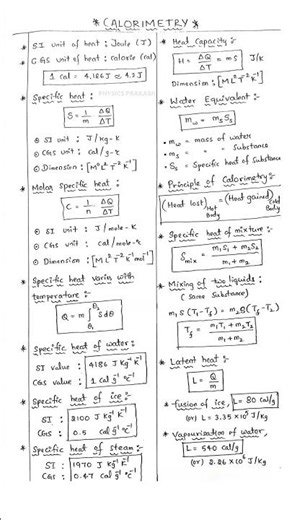 * CALORIMETRY *
* SI unit of heat : Joule (J)
* CGS unit of heat : calorie (cal)
1 cal = 4.186J ≃ 4.2J
* Specific heat :-
S = 1/m ΔQ/ΔT
⊙ SI unit : J/kg-k
⊙ CGS unit : cal/g-℃
⊙ Dimension : [M⁰L²T⁻²K⁻¹]
* Molar Specific heat :-
C = 1/n ΔQ/ΔT
⊙ SI unit : J/mole-k
⊙ CGS unit : cal/mole-℃
⊙ Dimension : [ML²T⁻²K⁻¹mol⁻¹]
* Specific heat varies with
temperature :-
Q = m∫Sdθ
* Specific heat of water :-
SI value : 4186 J kg⁻¹ K⁻¹
CGS value : 1 cal g⁻¹ ℃⁻¹
* Specific heat of ice :-
SI : 2100 J kg⁻¹ K⁻¹
CGS : 0.5 cal g⁻¹ ℃⁻¹
* Specific heat of steam :-
SI : 1970 J kg⁻¹ K⁻¹
CGS : 0.47 cal g⁻¹ ℃⁻¹
* Heat Capacity :-
H = ΔQ/ΔT = mS J/K
Dimension : [ML²T⁻²K⁻¹]
* Water Equivalent :-
m_w = m_s S_s
• m_w = mass of water
• m_s = " " Substance
• S_s = Specific heat of Substance
* Principle of Calorimetry :-
(Heat lost) Hot Body = (Heat gained) Cold Body
* Specific heat of mixture :-
S_mix = (m₁S₁ + m₂S₂)/(m₁ + m₂)
* Mixing of two liquids :
(Same Substance)
m₁S (T₁-T_f) = m₂S(T_f-T₂)
T_f = (m₁T₁ + m₂T₂)/(m₁ + m₂)
* Latent heat :-
L = Q/m
* fusion of ice, L = 80 cal/g
(or) L = 3.35×10⁵ J/kg
* Vapourisation of water,
L = 540 cal/g
(or) 2.26×10⁶ J/kg